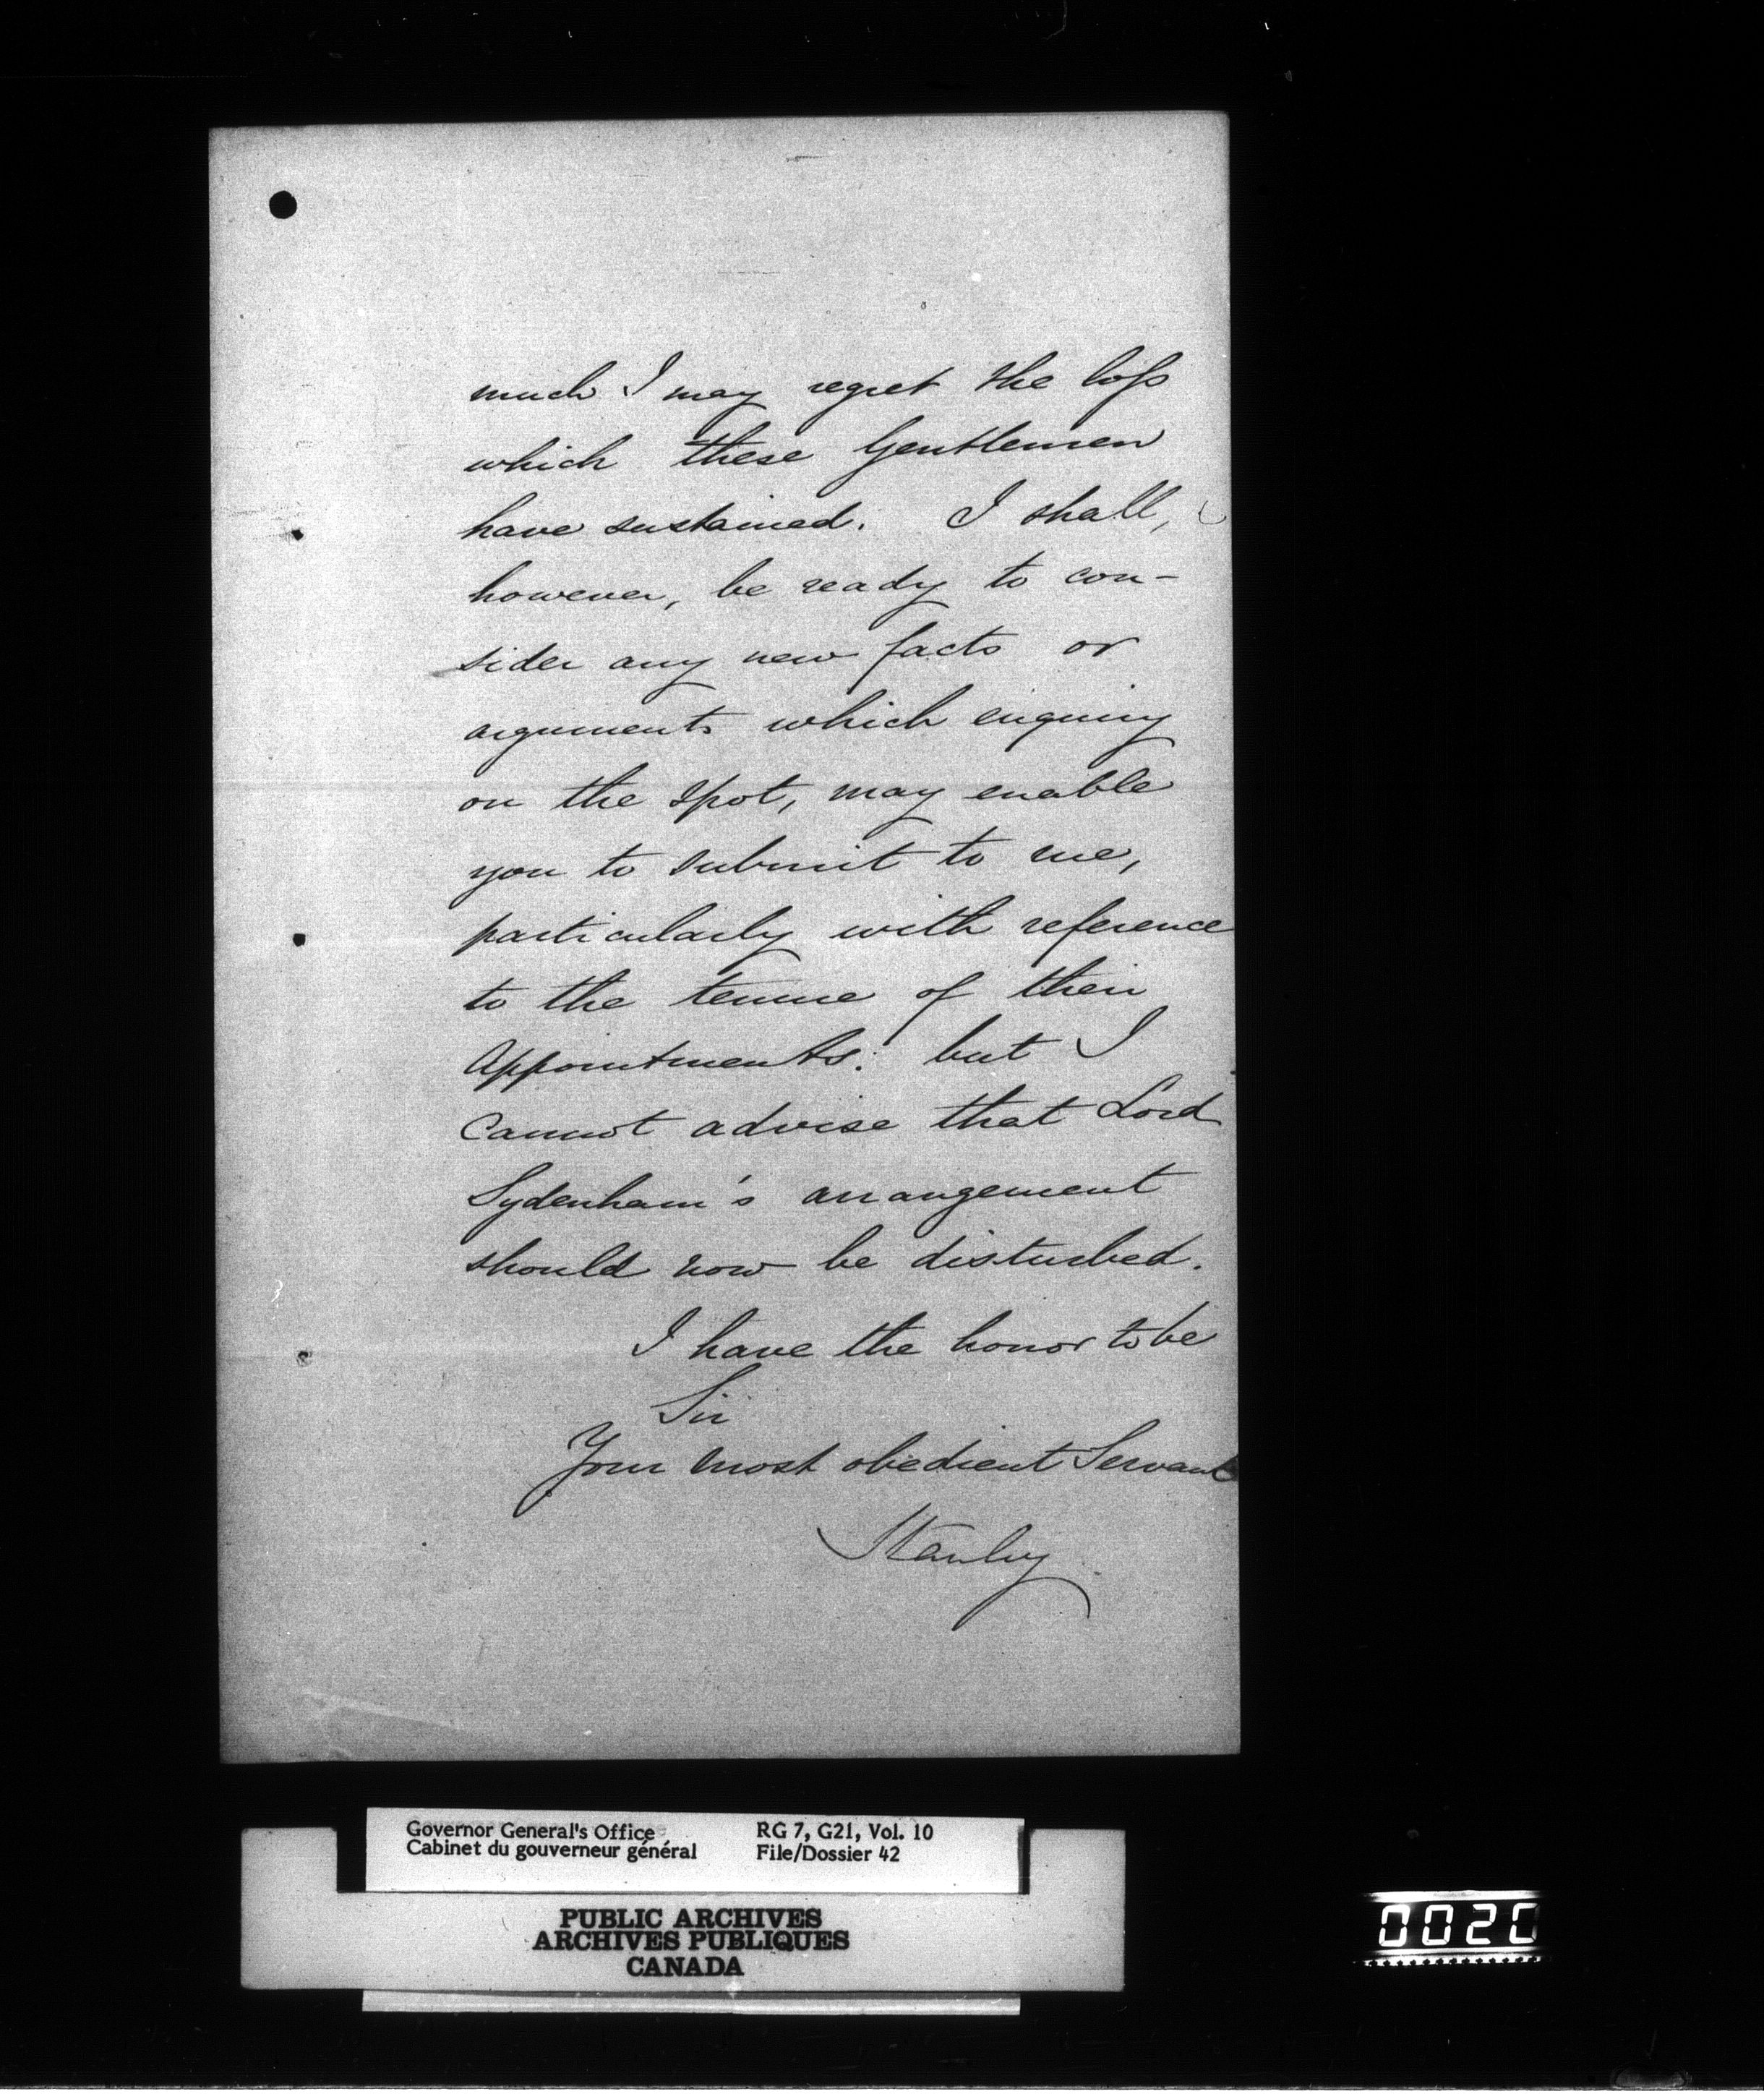 much I may regret the loss
which these Gentlemen
have sustained. I shall,
however, be ready to con-
sider any new facts or
arguments which enquiry
on the spot, may enable
you to submit to me,
particularly with reference
to the tenure of their
Appointments: but I
Cannot advise that Lord
Sydenham's arrangement
should now be disturbed.
I have the honor to be
Sir
Your most obedient Servant
Stanley
Governor General's Office RG 7, G21, Vol. 10
Cabinet du gouverneur général File/Dossier 42
PUBLIC ARCHIVES
ARCHIVES PUBLIQUES
CANADA
0020